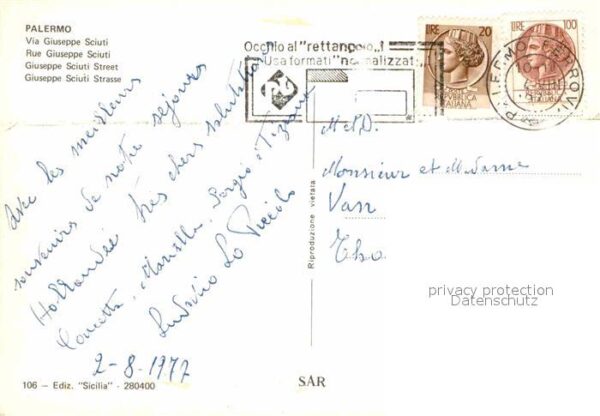 PALERMO
Via Giuseppe Sciuti
Rue Giuseppe Sciuti
Giuseppe Sciuti Street
Giuseppe Sciuti Strasse
Occhio al "rettangolo"!
Usa formati "normalizzati"
LIRE 20
REPUBBLICA ITALIANA
LIRE 100
PALERMO FERROVIA
Avec les meilleurs
souvenirs de notre séjours
Hollandie très chers salutations
Concetta, Marcella, Sergio, Tiziana
Ludovico Lo Piccolo
2-8-1977
M et D.
Monsieur et Madame
Van
Riproduzione vietata
privacy protection
Datenschutz
106 — Ediz. "Sicilia" - 280400
SAR